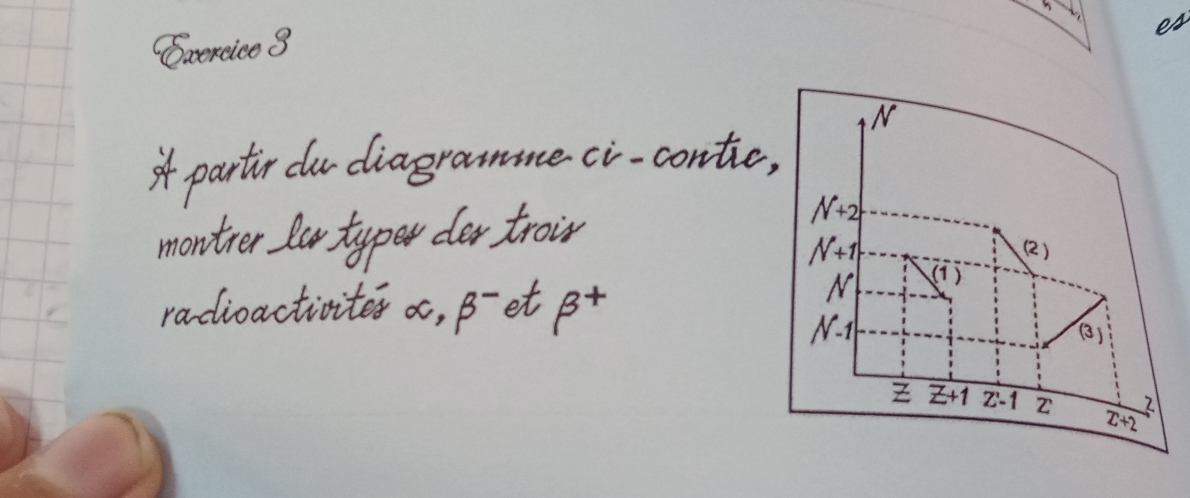 Exercice 3
A partir du diagramme ci-contre,
montrer les types des trois
radioactivités α, β⁻ et β⁺
N
N+2
N+1
N
N-1
(1)
(2)
(3)
Z Z+1 Z'-1 Z' Z'+2 Z
es